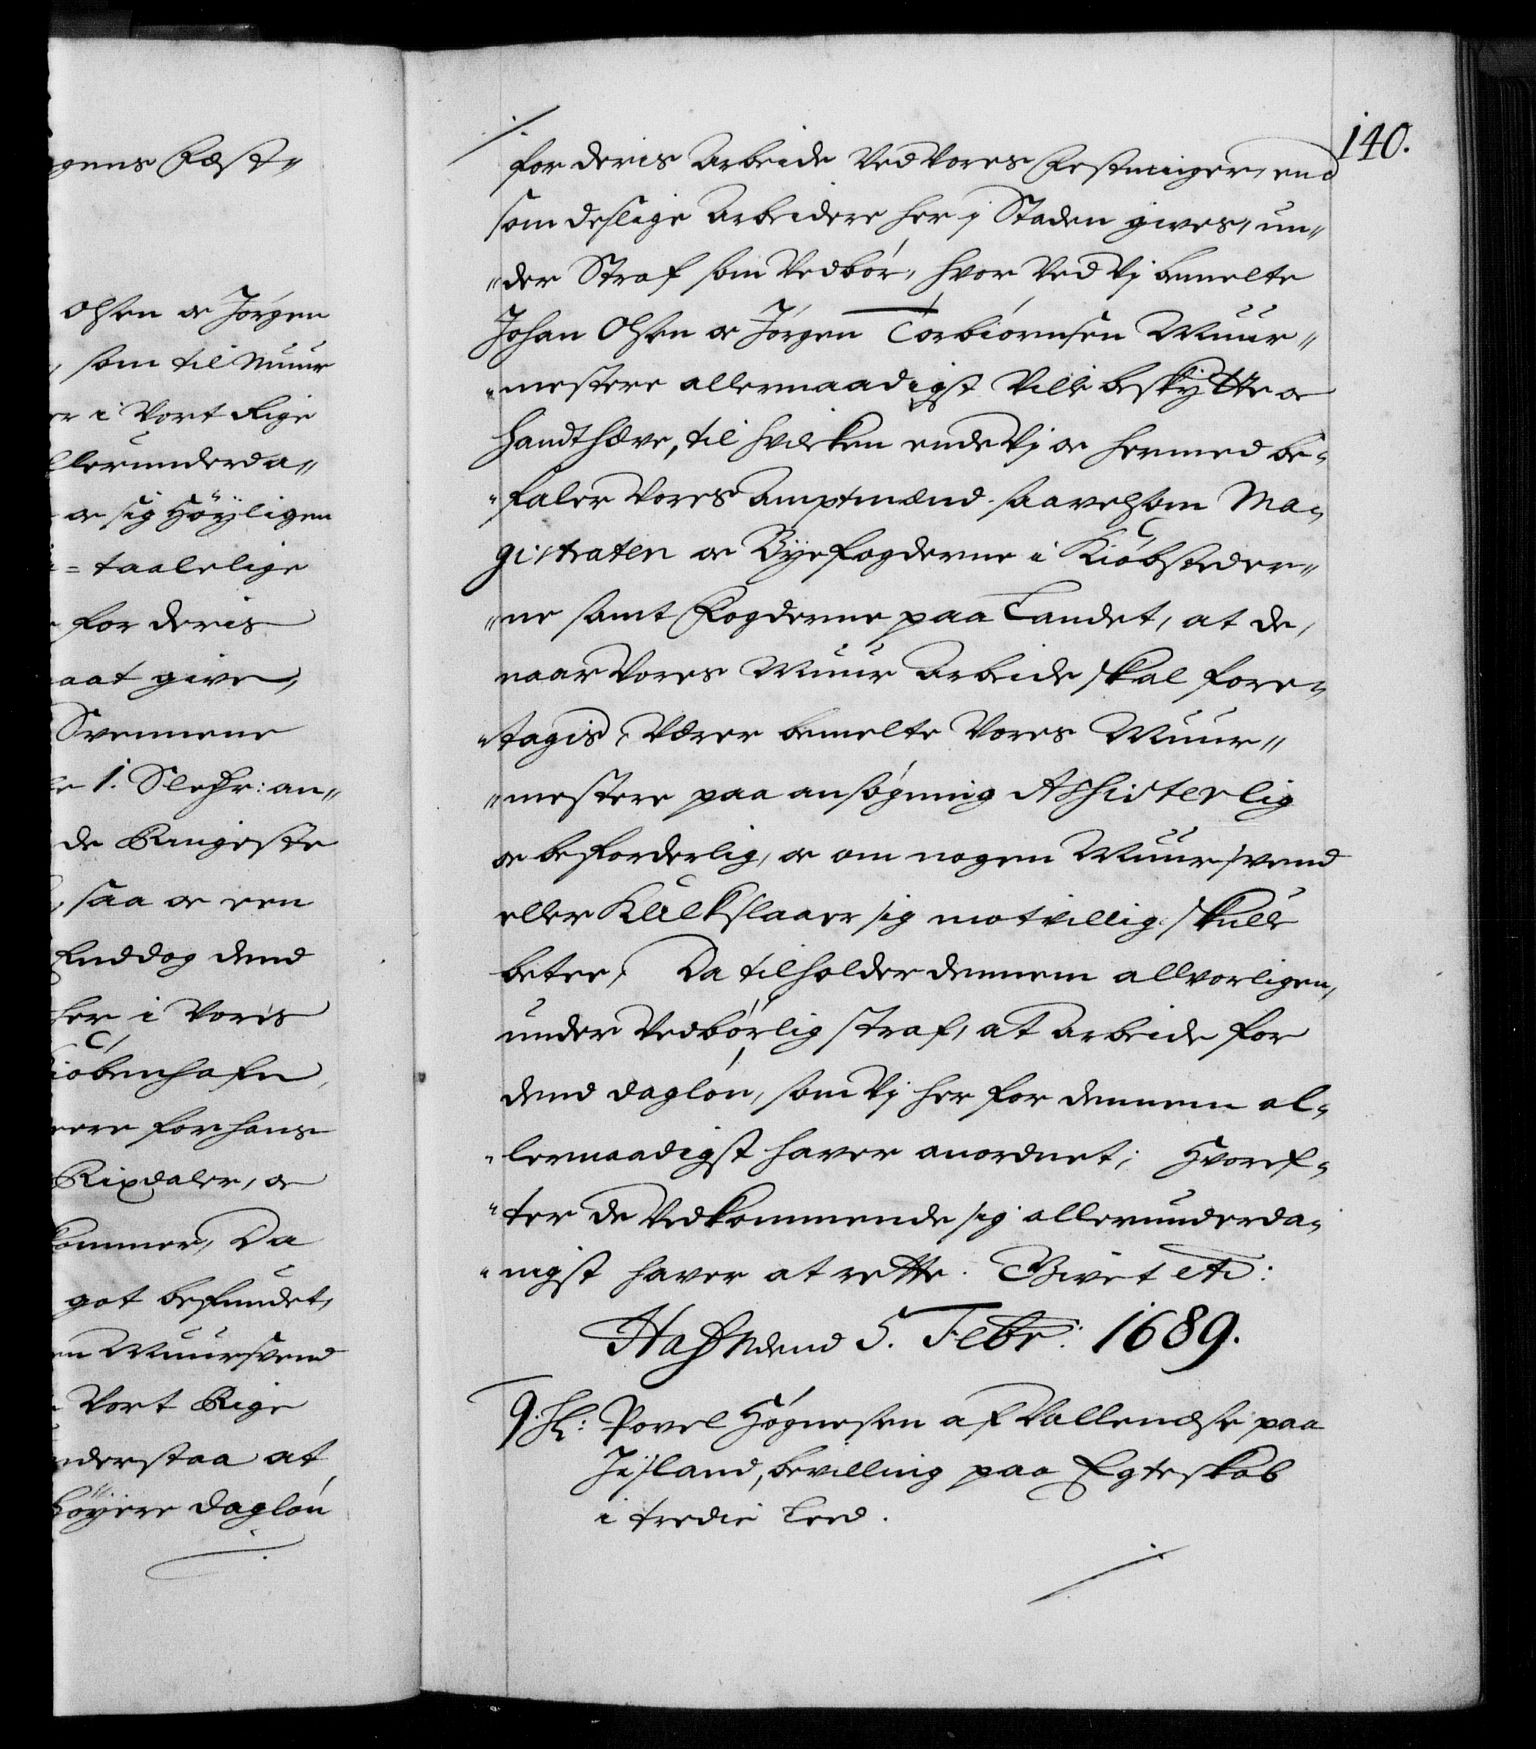 gens Fæst„
Olsen oc Jörgen
som til Muur
er i Vort Rige
llerunderda„
oc sig Höyligen
= taalelige
for deris
aat give,
Svennene
1. Sledr: an„
de Ringeste
saa oc een
Enddog dend
her i Voris
Kiöbenhafn,
ere for hans
Rixdaler, oc
kommer, Da
got befundet,
en Muursvend
Vort Rige
nderstaa at
höyere daglön
140.
for deris Arbeide Ved Vores Festninger, end
som deslige Arbeidere her j Staden gives, un„
„der Straf som Vedbör, hvor Ved Vj bemelte
Johan Olsen oc Jörgen Torbiörnsen Muur„
„mestere allernaadigst Ville beskytte oc
handthæve, til hvilken ende Vj oc hermed be„
„faler Vores Amptmænd saavelsom Ma„
gistraten oc Byefogderne i Kiöbsteder„
„ne samt Fogderne paa Landet, at de,
naar Vores Muur Arbeide skal fore„
„tagis, Værer bemelte Vores Muur„
„mestere paa ansögning Assisterlig
oc beforderlig, oc om nogen Muursvend
eller Kalkslaaer sig motvillig skulle
betee, Da tilholder dennem allvorligen,
under Vedbörlig straf, at Arbeide for
dend daglön, som Vj her for dennem al„
„lernaadigst haver anordnet; Hvoref„
„ter de Vedkommende sig allerunderda„
„nigst haver at rette. Givet etc:
Hafn dend 5. Febr: 1689.
Povel Högnesen af Vallenæse paa
Jisland, bevilling paa Egteskab
i tredie Leed.